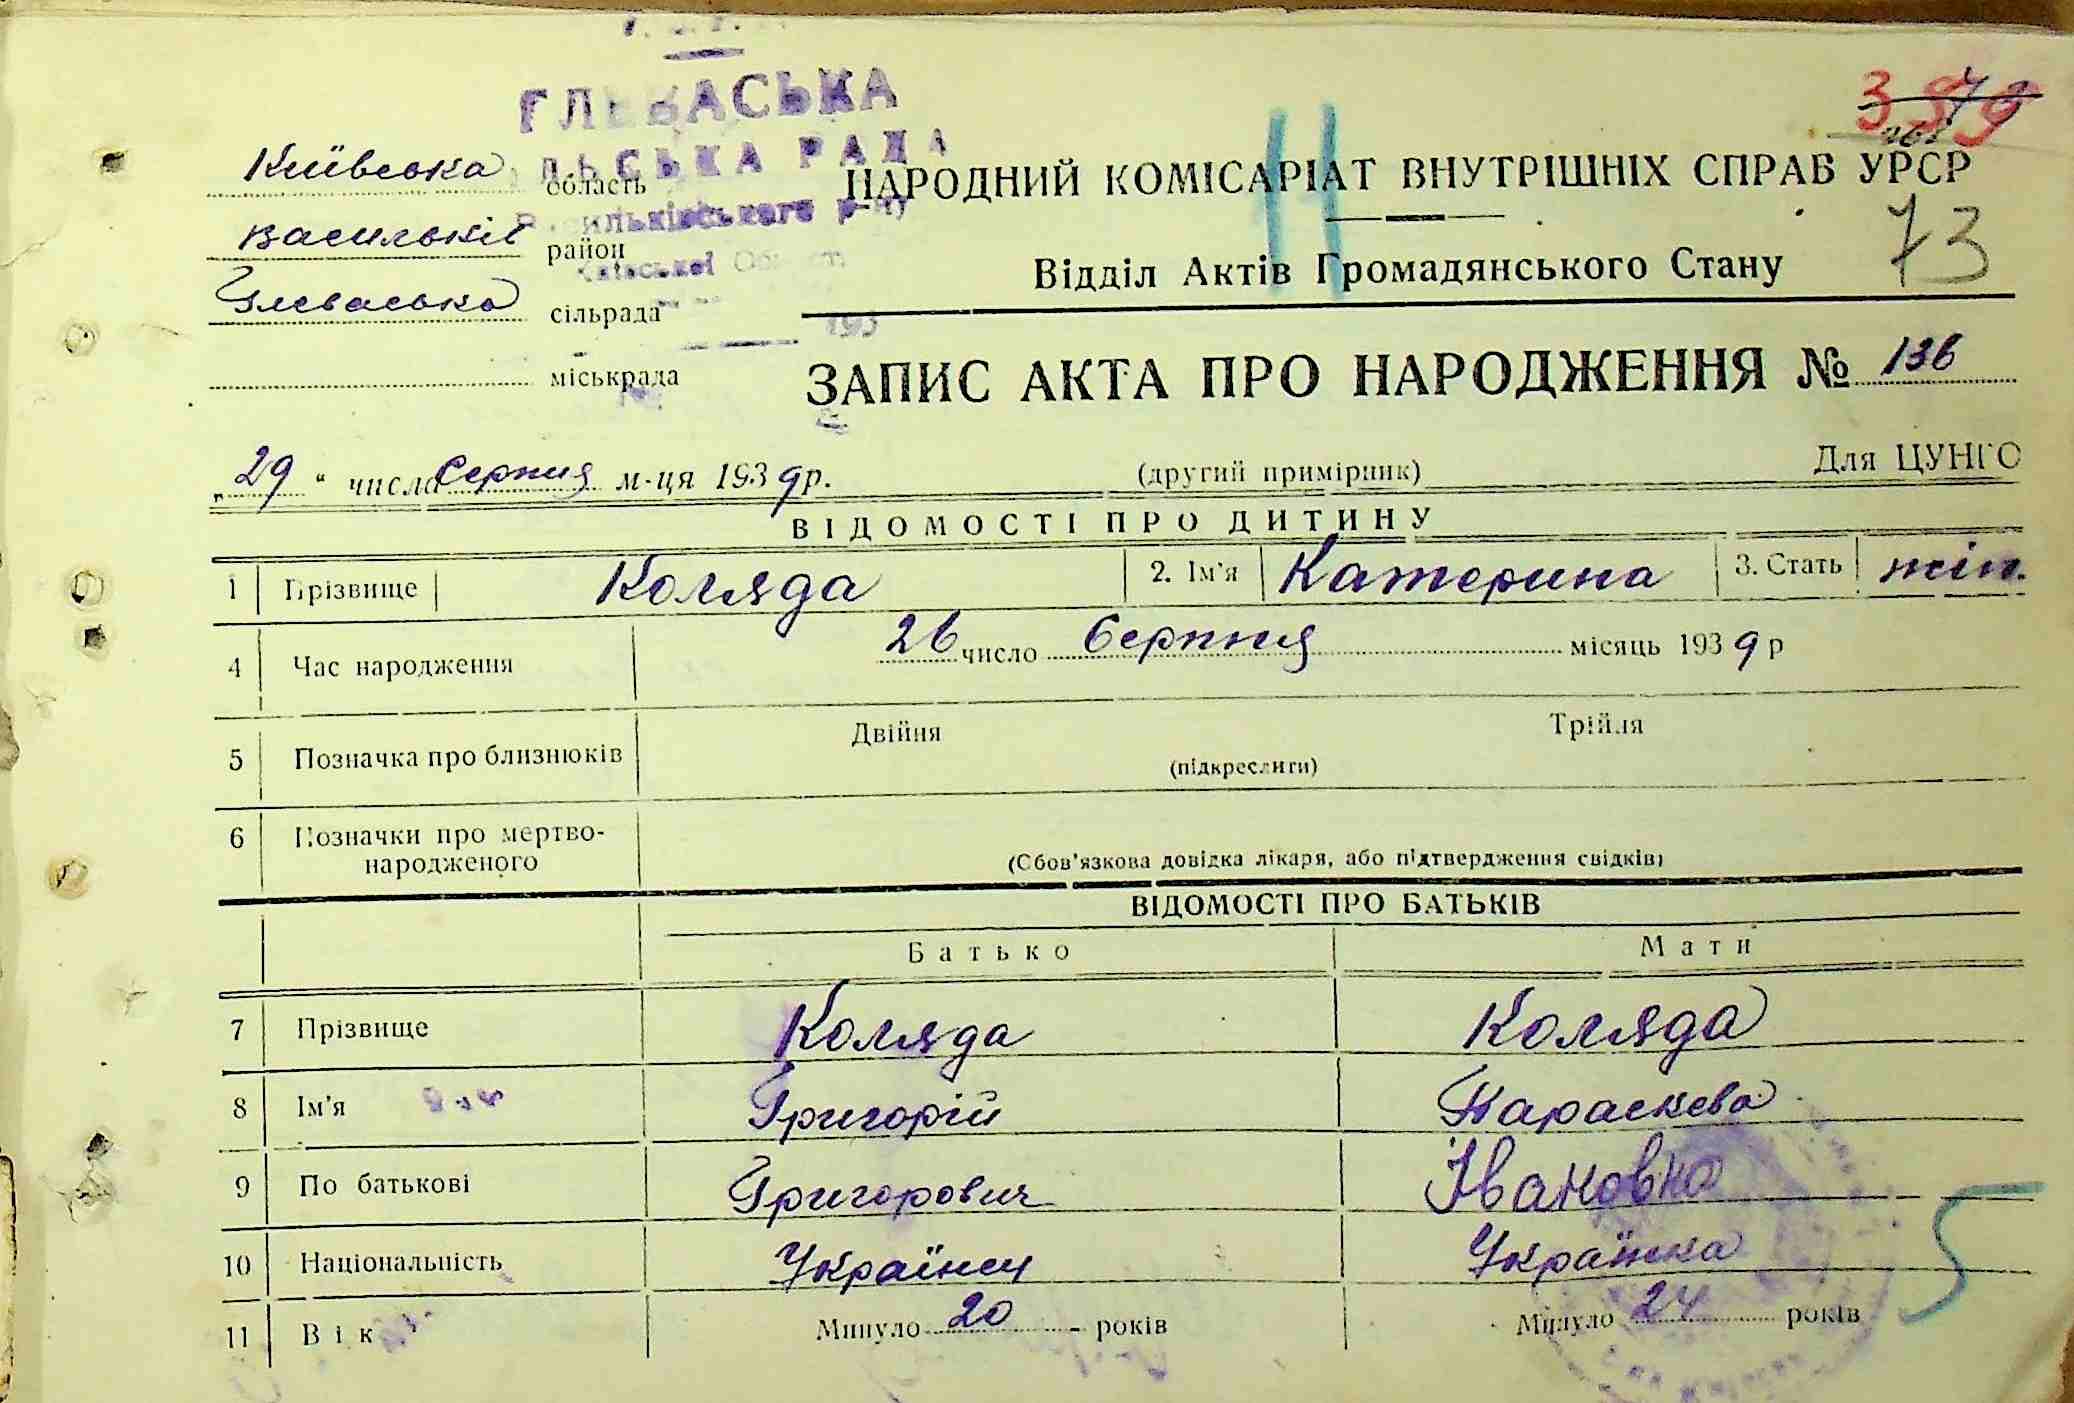 ГЛЕВАСЬКА
СІЛЬСЬКА РАДА
Васильківського р-ну
Київської Області
193
389
73
Київська область
Васильків район
Глеваська сільрада
міськрада
НАРОДНИЙ КОМІСАРІАТ ВНУТРІШНІХ СПРАВ УРСР
Відділ Актів Громадянського Стану
11
ЗАПИС АКТА ПРО НАРОДЖЕННЯ № 136
„29" числа Серпня м-ця 1939 р. (другий примірник) Для ЦУНГО
ВІДОМОСТІ ПРО ДИТИНУ
1 Прізвище Коляда 2. Ім'я Катерина 3. Стать жін.
4 Час народження 26 число Серпня місяць 1939 р
5 Позначка про близнюків Двійня Трійля
(підкреслити)
6 Позначки про мертво-
народженого (Обов'язкова довідка лікаря, або підтвердження свідків)
ВІДОМОСТІ ПРО БАТЬКІВ
Батько Мати
7 Прізвище Коляда Коляда
8 Ім'я Григорій Параскева
9 По батькові Григорович Івановна
10 Національність Українець Українка
5
11 Вік Минуло 20 років Минуло 24 років